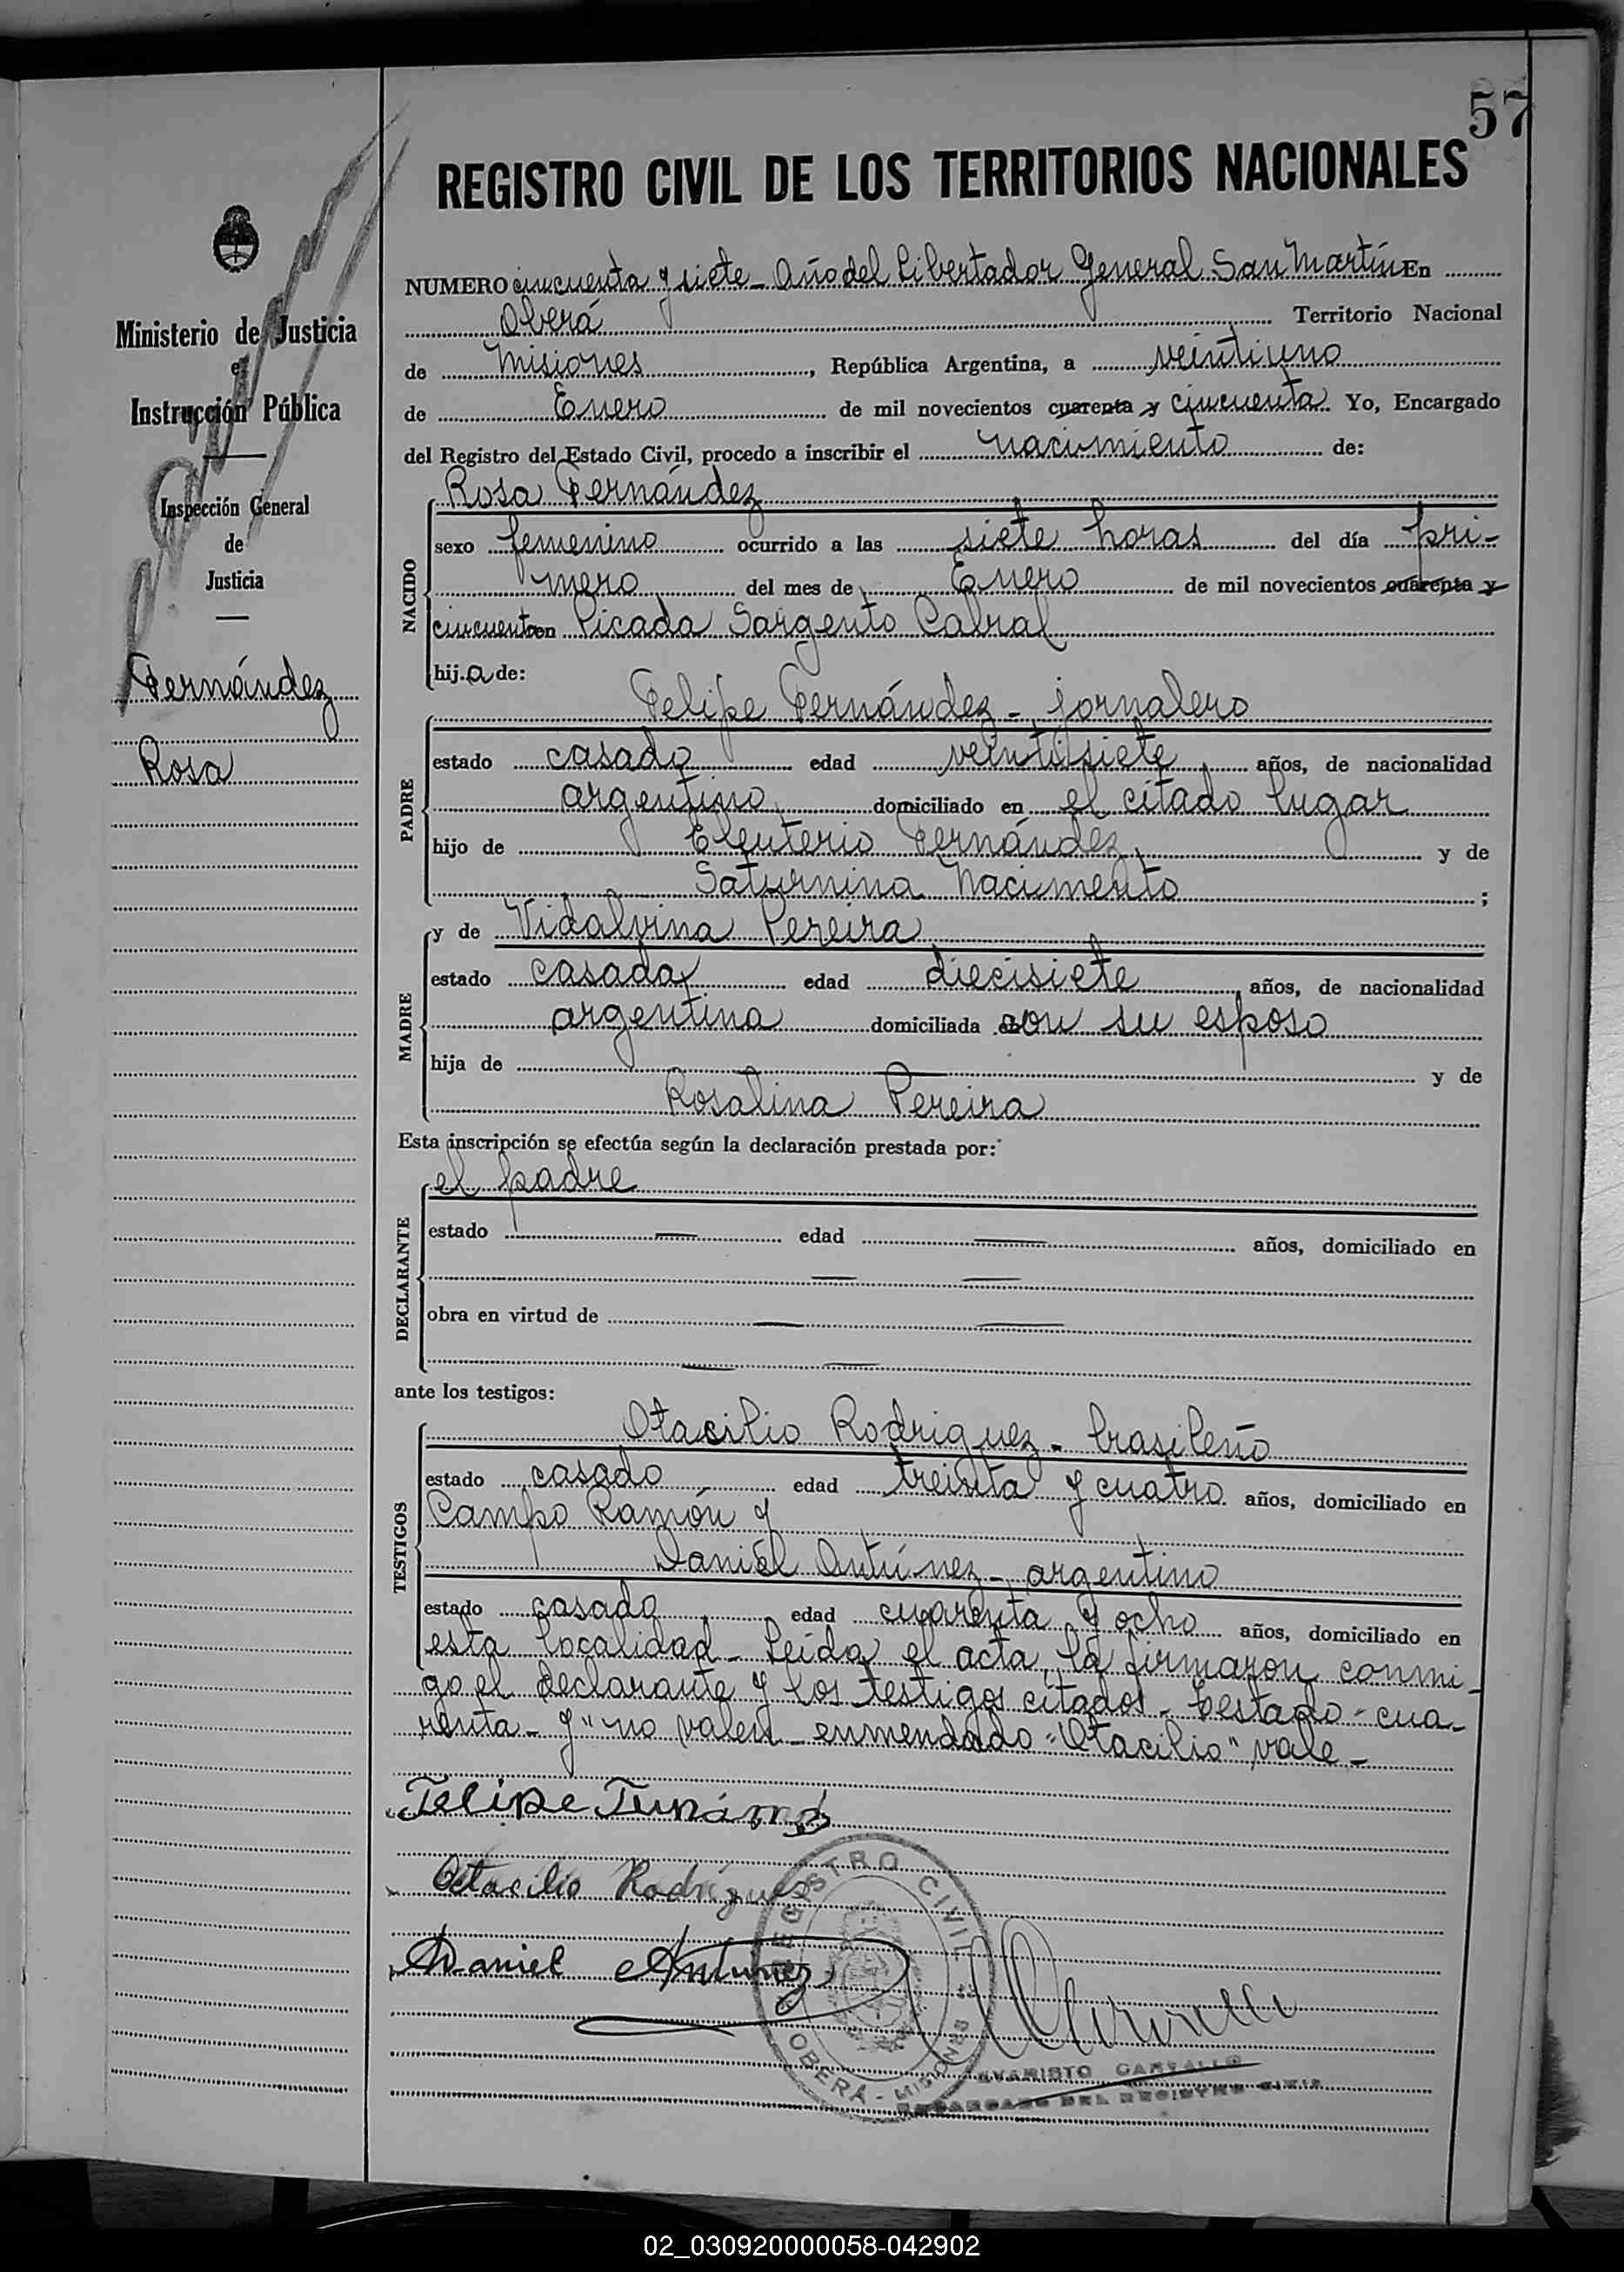 57
REGISTRO CIVIL DE LOS TERRITORIOS NACIONALES
NUMERO cincuenta y siete - Año del Libertador General San Martín En
Oberá Territorio Nacional
de Misiones, República Argentina, a veintiuno
de Enero de mil novecientos cuarenta y cincuenta. Yo, Encargado
del Registro del Estado Civil, procedo a inscribir el nacimiento de:
Ministerio de Justicia
e
Instrucción Pública
Inspección General
de
Justicia
Fernández
Rosa
NACIDO
Rosa Fernández
sexo femenino ocurrido a las siete horas del día pri-
mero del mes de Enero de mil novecientos cuarenta y
cincuenta en Picada Sargento Cabral
hij.a de:
PADRE
Felipe Fernández - jornalero
estado casado edad veintisiete años, de nacionalidad
argentino domiciliado en el citado lugar
hijo de Eleuterio Fernández y de
Saturnina Nacimento ;
MADRE
y de Vidalvina Pereira
estado casada edad diecisiete años, de nacionalidad
argentina domiciliada con su esposo
hija de — y de
Rosalina Pereira
Esta inscripción se efectúa según la declaración prestada por:
DECLARANTE
el padre
estado — edad — años, domiciliado en
— —
obra en virtud de — —
— —
ante los testigos:
TESTIGOS
Otacilio Rodriguez - brasileño
estado casado edad treinta y cuatro años, domiciliado en
Campo Ramón y
Daniel Antúnez - argentino
estado casado edad cuarenta y ocho años, domiciliado en
esta localidad - Leida el acta, la firmaron conmi-
go el declarante y los testigos citados - Testado - cua-
renta - y" no valen - enmendado "Otacilio" vale -
Felipe
Otacilio Rodriguez
Daniel Antunez
REGISTRO CIVIL
OBERÁ - MISIONES
EVARISTO CARVALLO
ENCARGADO DEL REGISTRO CIVIL
02_030920000058-042902